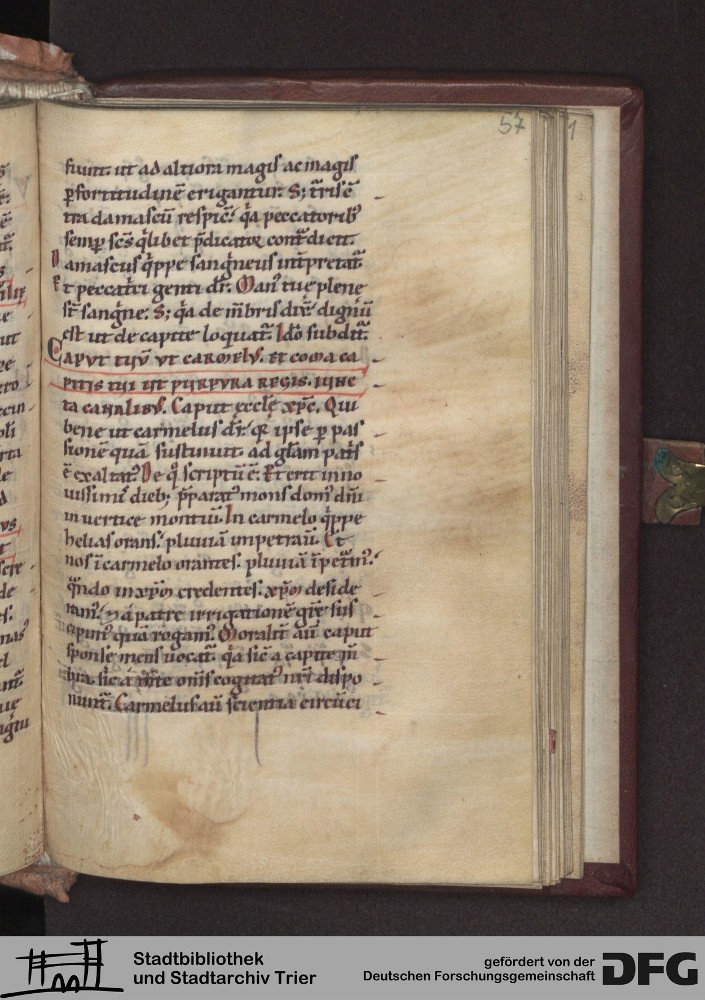 57
1
fiunt. ut ad altiora magis ac magis
ꝑ fortitudinē erigantur. S; t̄ris c̄
tra damascū respic̄. q̓a peccatorib᷒
semꝑ sc̄s q̓libet p̄dicator cont̄dicit.
Damascus q̓ppe sanguneus int̄pretat᷑.
Et peccatrici genti dr̄. Man᷒ tue plene
st̄ sangine. S; q̓a de m̄bris dix̄ dignū
est ut de capite loquat᷑. Ido subdit᷑.
CAPVT TUŪ VT CARMELVS. ET COMA CA
PITIS TUI UT PURPURA REGIS. IUNC
ta CANALIBVS. Caput eccl̄e xp̄c. Qui
bene ut carmelus dr̄. q̓ ipse ꝑ pas
sionē quā sustinuit. ad gl̄am pat̄s
ē exaltat᷒. De q̓ scriptū ē. Et erit in no
uissimis dieb; p̄parat᷒ mons dom᷒ dn̄i
in uertice montiū. In carmelo q̓ppe
helias orans. pluuiā impetrauit. Et
nos ī carmelo orantes. pluuiā īpetram᷒.
q̄ndo in xp̄m credentes. xp̄m deside
ram᷒. & a patre irrigationē gr̄e sus
cipim᷒ quā rogam᷒. Moralit᷑ aū caput
sponse mens uocat᷑. q̓a sic̄ a capite m̄
bra. sic̄ a m̄te om̄s cogitat᷒ nr̄i dispo
nunt᷑. Carmelus aū scientia circūci
Stadtbibliothek
und Stadtarchiv Trier
gefördert von der
Deutschen Forschungsgemeinschaft
DFG